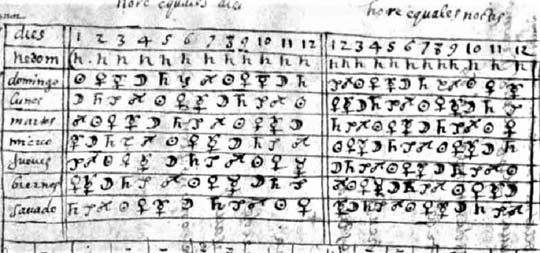 hore equales dia hore equales noctis
dies 1 2 3 4 5 6 7 8 9 10 11 12 1 2 3 4 5 6 7 8 9 10 11 12
hedom h h h h h h h h h h h h h h h h h h h h h h h h
domingo ☉ ♀ ☿ ☽ ♄ ♃ ♂ ☉ ♀ ☿ ☽ ♄ ♃ ♂ ☉ ♀ ☿ ☽ ♄ ♃ ♂ ☉ ♀ ☿
lunes ☽ ♄ ♃ ♂ ☉ ♀ ☿ ☽ ♄ ♃ ♂ ☉ ♀ ☿ ☽ ♄ ♃ ♂ ☉ ♀ ☿ ☽ ♄ ♃
martes ♂ ☉ ♀ ☿ ☽ ♄ ♃ ♂ ☉ ♀ ☿ ☽ ♄ ♃ ♂ ☉ ♀ ☿ ☽ ♄ ♃ ♂ ☉ ♀
mierco ☿ ☽ ♄ ♃ ♂ ☉ ♀ ☿ ☽ ♄ ♃ ♂ ☉ ♀ ☿ ☽ ♄ ♃ ♂ ☉ ♀ ☿ ☽ ♄
jueves ♃ ♂ ☉ ♀ ☿ ☽ ♄ ♃ ♂ ☉ ♀ ☿ ☽ ♄ ♃ ♂ ☉ ♀ ☿ ☽ ♄ ♃ ♂ ☉
biernes ♀ ☿ ☽ ♄ ♃ ♂ ☉ ♀ ☿ ☽ ♄ ♃ ♂ ☉ ♀ ☿ ☽ ♄ ♃ ♂ ☉ ♀ ☿ ☽
savado ♄ ♃ ♂ ☉ ♀ ☿ ☽ ♄ ♃ ♂ ☉ ♀ ☿ ☽ ♄ ♃ ♂ ☉ ♀ ☿ ☽ ♄ ♃ ♂